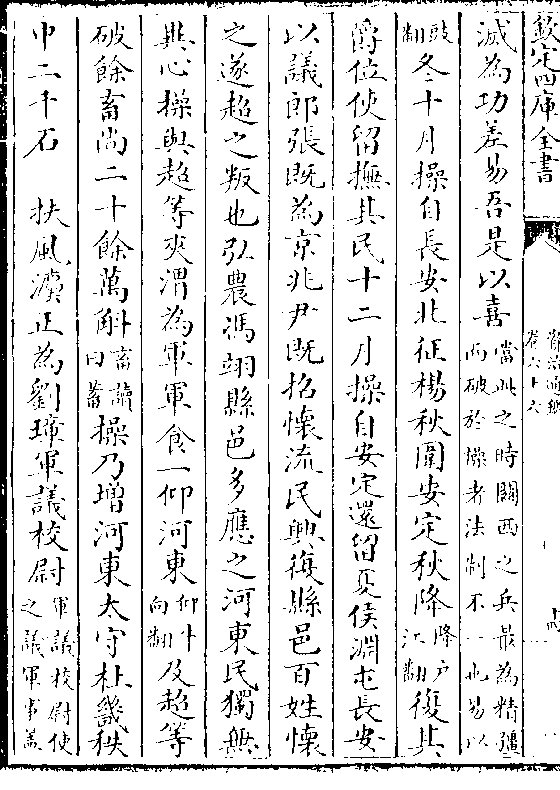 欽定四庫全書
資治通鑑
卷六十六
滅為功差易吾是以喜當此之時關西之兵最為精彊而破於操者法制不一也易以
豉翻冬十月操自長安北征楊秋圍安定秋降降戶江翻復其
爵位使留撫其民十二月操自安定還留夏侯淵屯長安
以議郎張既為京兆尹既招懷流民興復縣邑百姓懷
之遂超之叛也弘農馮翊縣邑多應之河東民獨無
異心操與超等夾渭為軍軍食一仰河東仰牛向翻及超等
破餘畜尚二十餘萬斛畜讀曰蓄操乃增河東太守杜畿秩
中二千石　扶風灋正為劉璋軍議校尉軍議校尉使之議軍事蓋